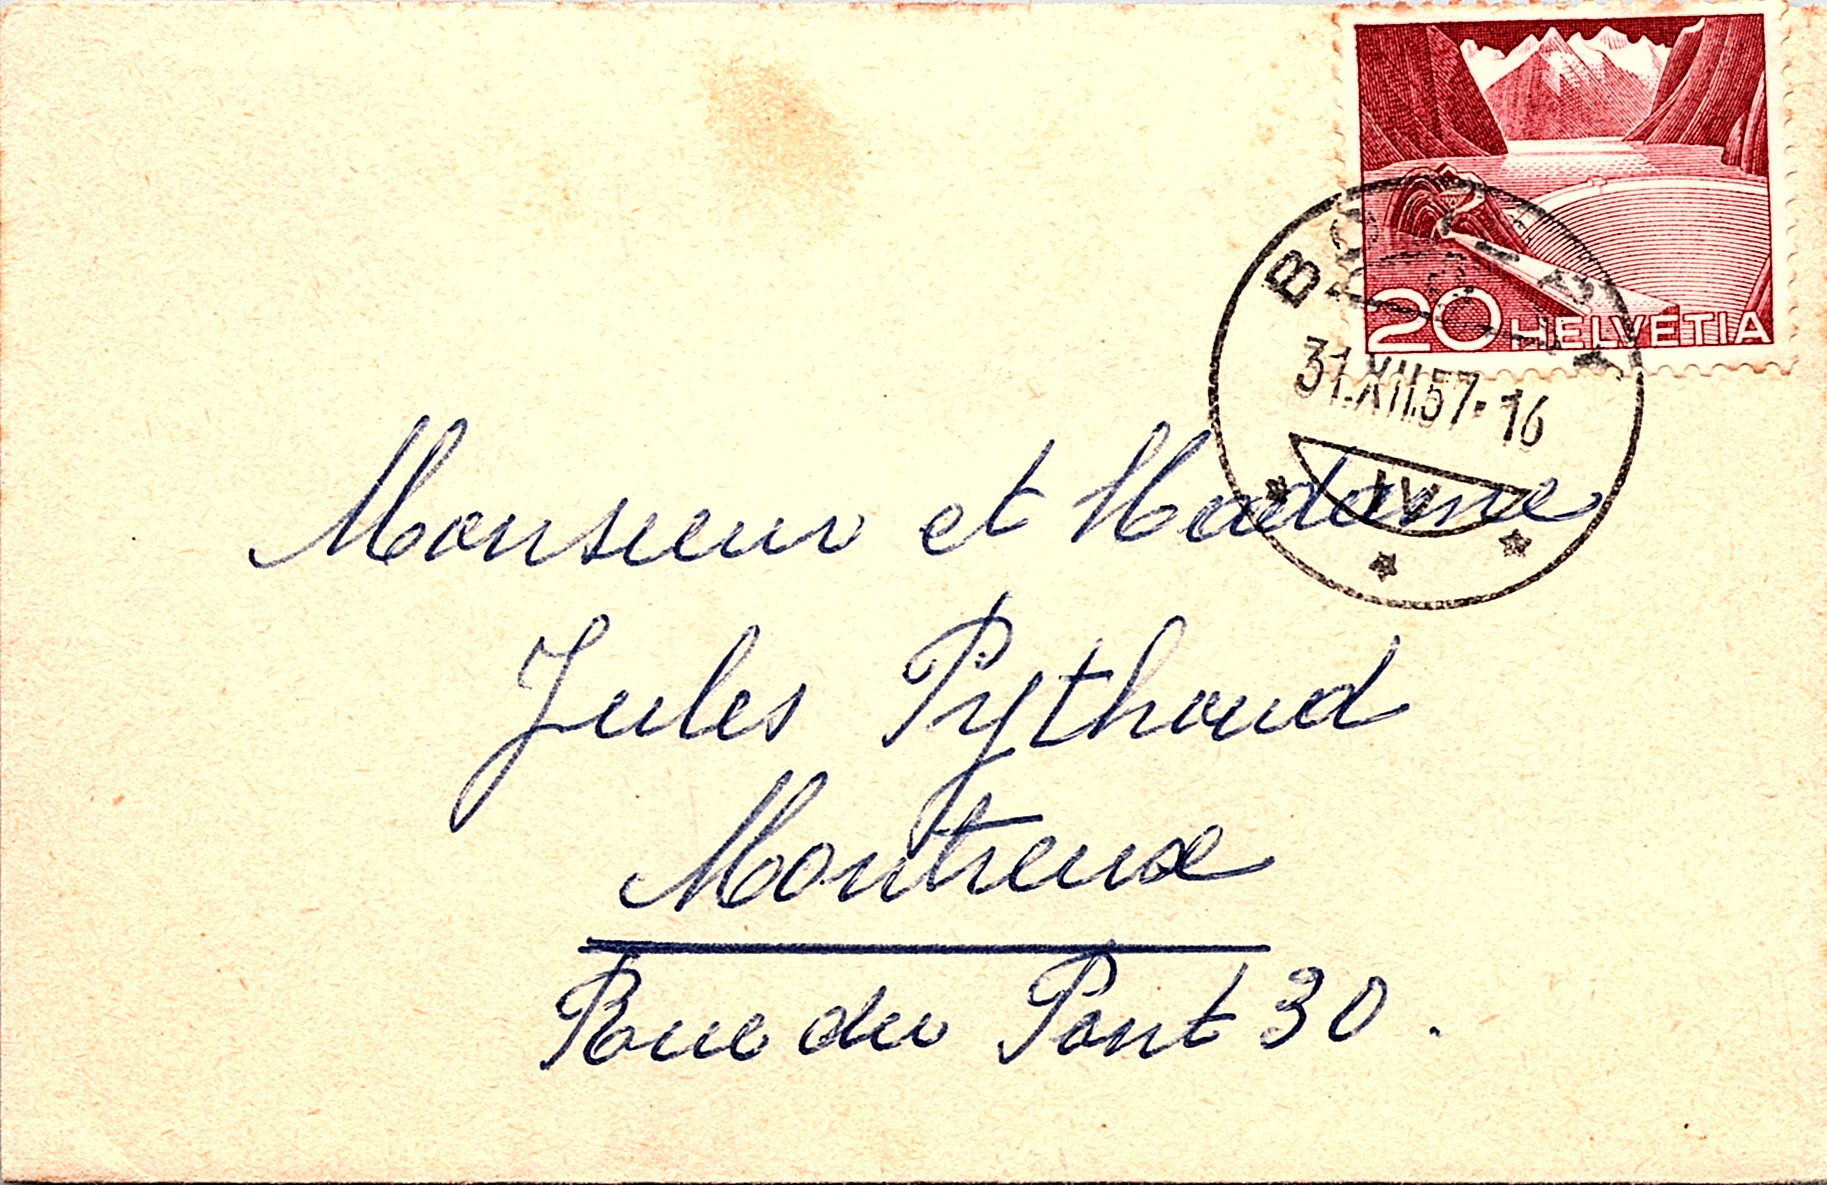 20 HELVETIA
31.XII.57-16
IV
Monsieur et Madame
Jules Pythoud
Montreux
Rue du Pont 30.